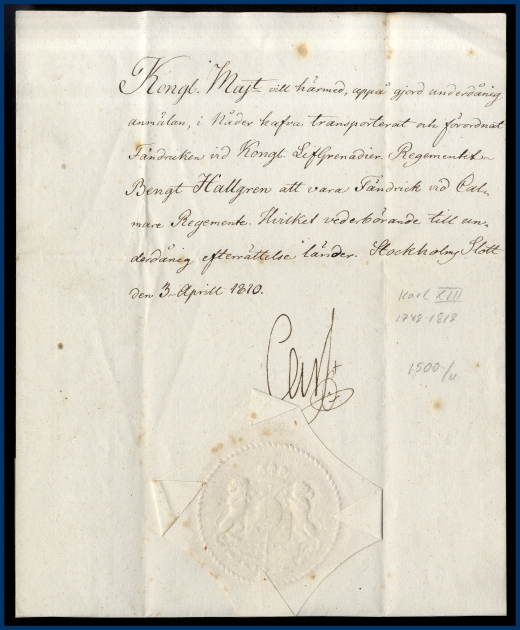 Kongl. Majt. vill härmed, uppå gjord underdånig
anmälan, i Nåder hafva transporterat och förordnat
Fändricken vid Kongl. LifGrenadier Regementet
Bengt Hallgren att vara Fändrick vid Cal-
mare Regemente. Hvilket vederbörande till un-
derdånig efterrättelse länder. Stockholms Slott
den 3 Aprill 1810.
Karl XIII
1748-1818
Carl
1500/